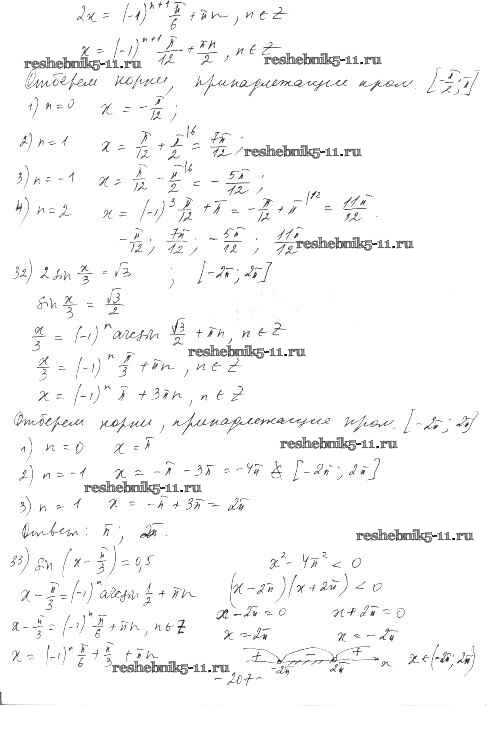 2x = (-1)^{n+1} π/6 + πn, n∈Z
x = (-1)^{n+1} π/12 + πn/2, n∈Z
reshebnik5-11.ru reshebnik5-11.ru
Отберем корни, принадлежащие пром. [-π/2; π]
1) n=0 x = -π/12;
2) n=1 x = π/12 + π/2 |6 = 7π/12;
reshebnik5-11.ru
3) n=-1 x = π/12 - π/2 |6 = -5π/12;
4) n=2 x = (-1)^3 π/12 + π = -π/12 + π |12 = 11π/12.
-π/12; 7π/12; -5π/12; 11π/12
reshebnik5-11.ru
32) 2 sin x/3 = √3 ; [-2π; 2π]
sin x/3 = √3/2
x/3 = (-1)^n arcsin √3/2 + πn, n∈Z
reshebnik5-11.ru
x/3 = (-1)^n π/3 + πn, n∈Z
x = (-1)^n π + 3πn, n∈Z
Отберем корни, принадлежащие пром. [-2π; 2π]
1) n=0 x = π
reshebnik5-11.ru
2) n=-1 x = -π - 3π = -4π ∉ [-2π; 2π]
reshebnik5-11.ru
3) n=1 x = -π + 3π = 2π
Ответ: π; 2π.
reshebnik5-11.ru
33) sin (x - π/3) = 0,5 x² - 4π² < 0
x - π/3 = (-1)^n arcsin 1/2 + πn (x-2π)(x+2π) < 0
x - π/3 = (-1)^n π/6 + πn, n∈Z x-2π=0 x+2π=0
x=2π x=-2π
x = (-1)^n π/6 + π/3 + πn + - + -2π 2π x x∈(-2π; 2π)
reshebnik5-11.ru
- 207 -